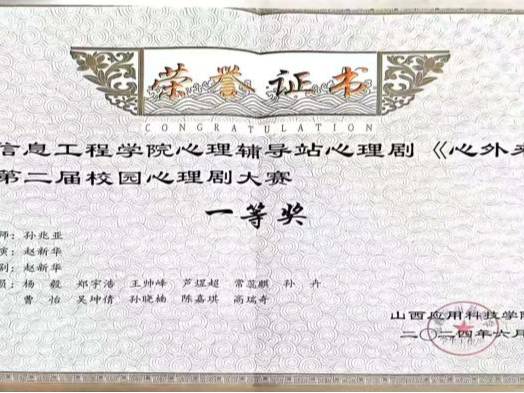 荣誉证书
CONGRATULATION
信息工程学院心理辅导站心理剧《心外来
第二届校园心理剧大赛
一等奖
师：孙兆亚
演：赵新华
剧：赵新华
员：杨毅 郑宇浩 王帅峰 芦煜超 常蕊麒 孙卉
曹怡 吴坤倩 孙晓楠 陈嘉琪 高瑞奇
山西应用科技学院
二〇二四年六月